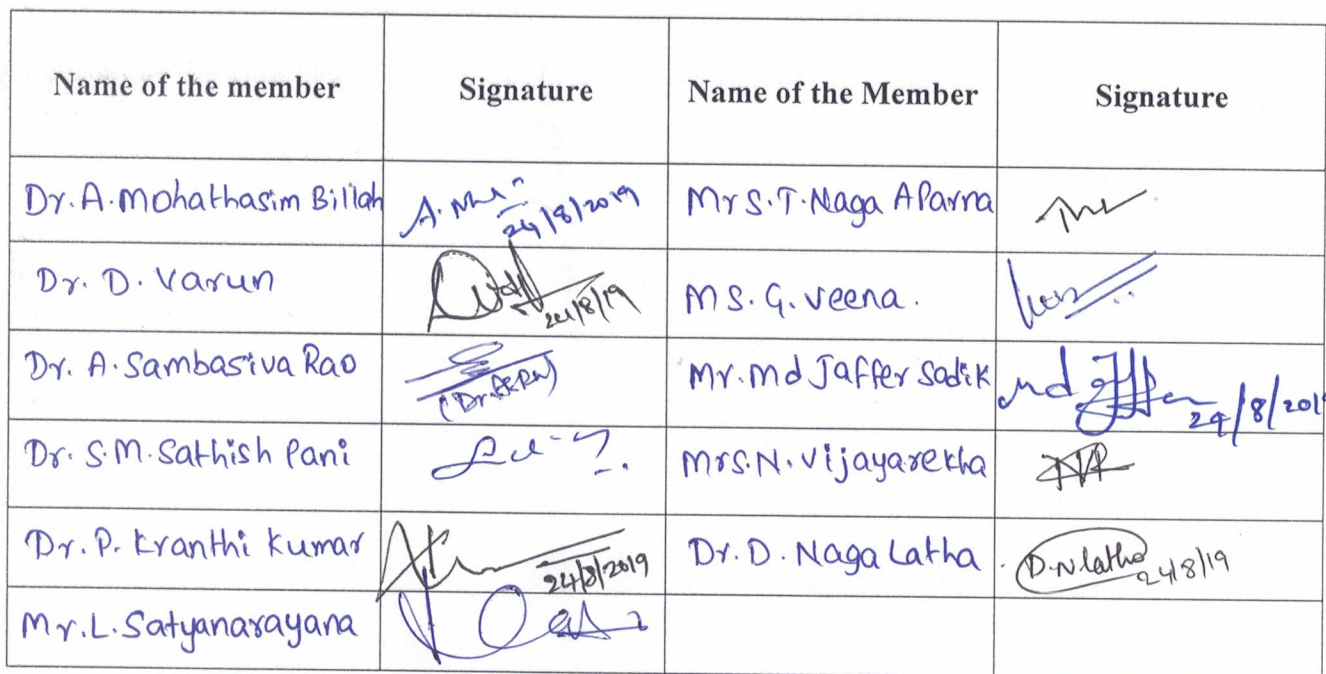 Name of the member Signature Name of the Member Signature
Dr. A. Mohathasim Billah 24/8/2019 Mrs. T. Naga Aparna
Dr. D. Varun 24/8/19 Ms. G. Veena.
Dr. A. Sambasiva Rao Mr. Md Jaffer Sadik Md 24/8/201
Dr. S.M. Sathish Pani Mrs. N. Vijayarekha
Dr. P. Kranthi Kumar 24/8/2019 Dr. D. Naga Latha D. N latha 24/8/19
Mr. L. Satyanarayana